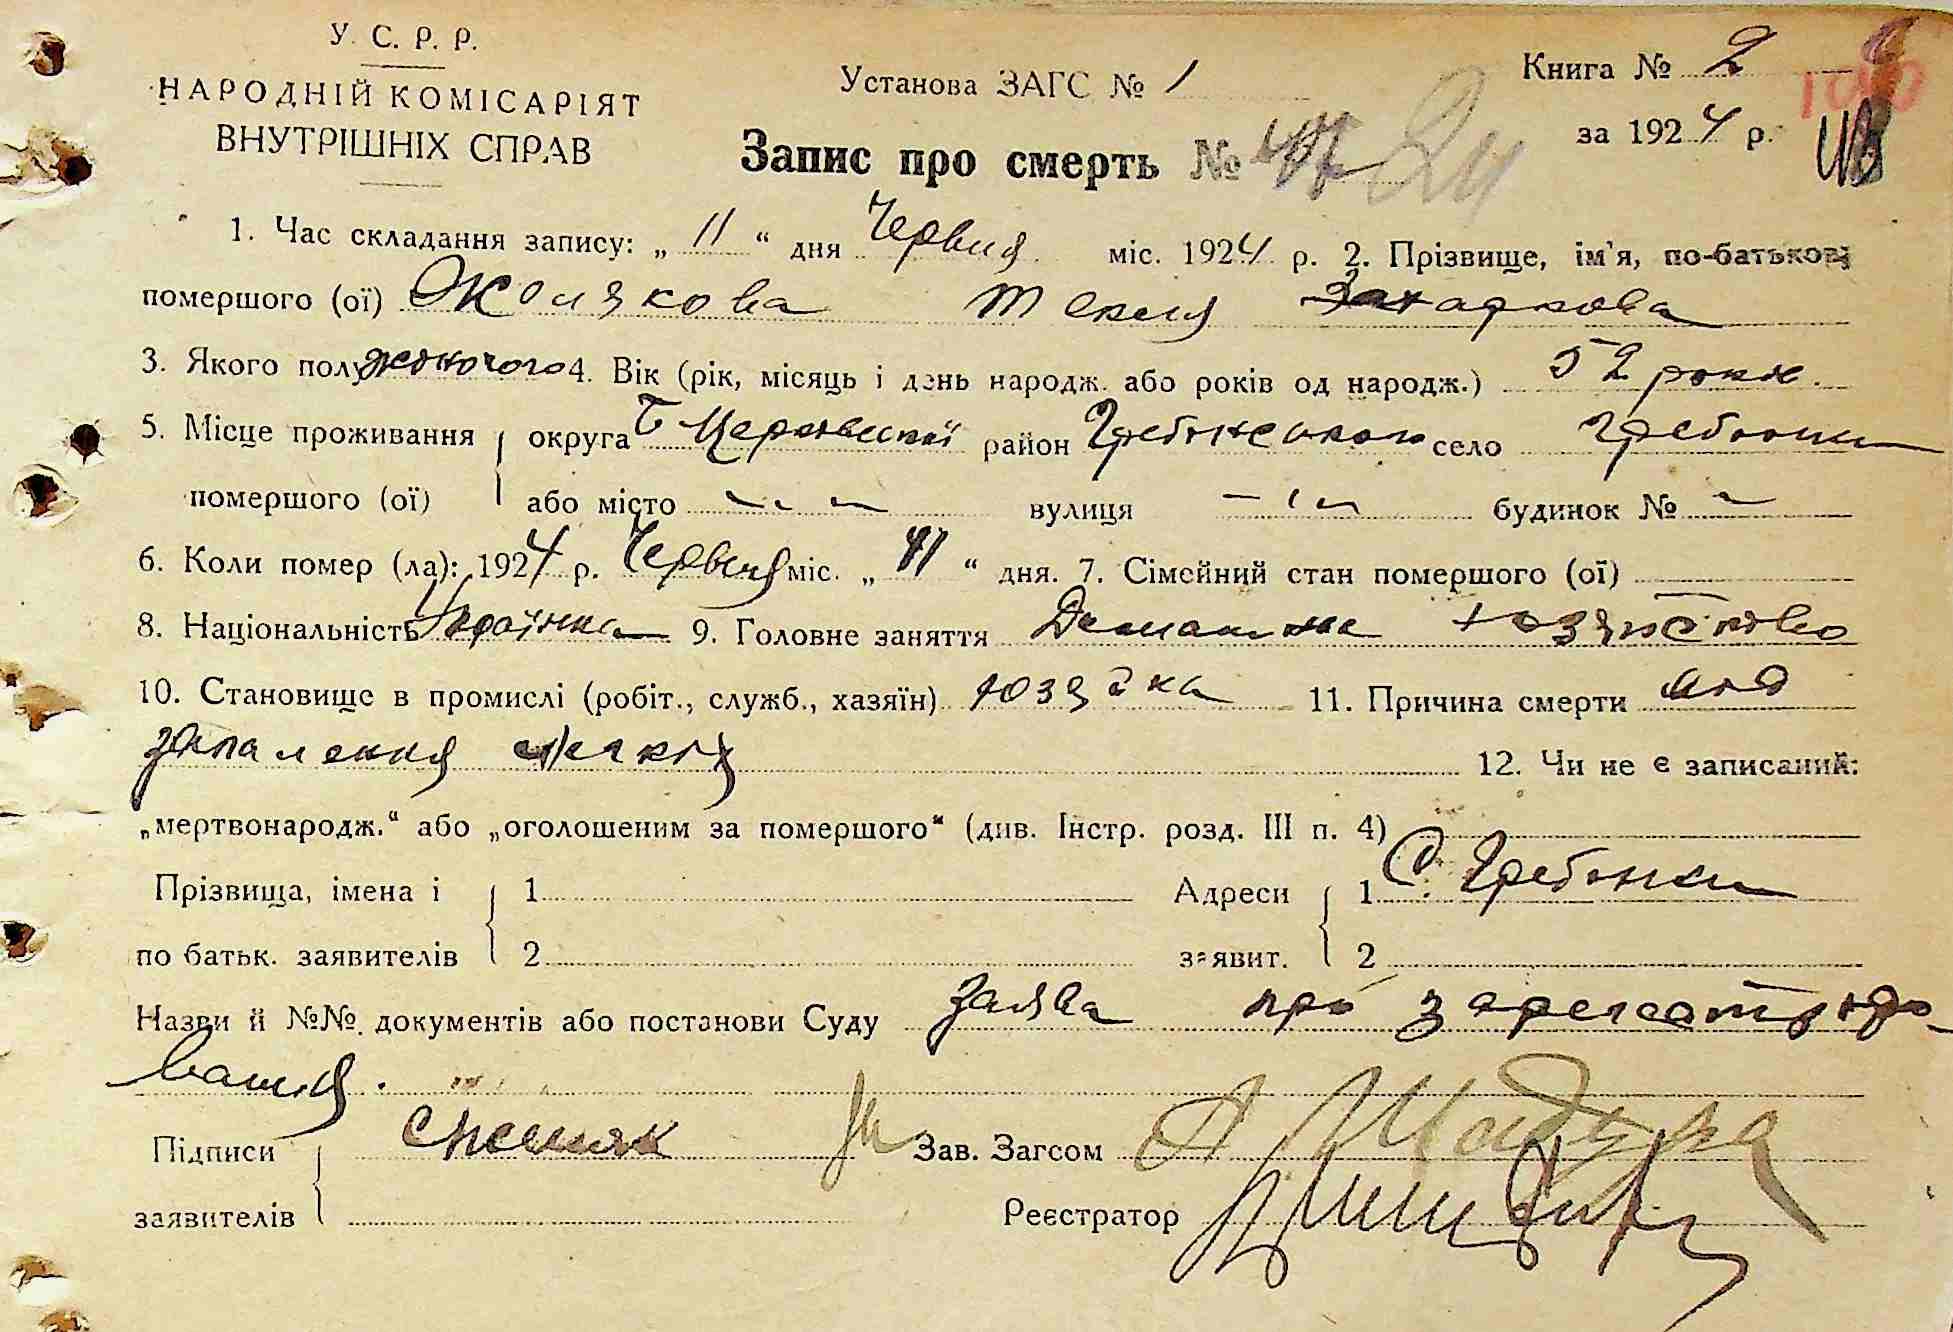 У. С. Р. Р.
НАРОДНІЙ КОМІСАРІЯТ
ВНУТРІШНІХ СПРАВ
Установа ЗАГС № 1
Книга № 2
за 1924 р.
Запис про смерть № 24
1. Час складання запису: „ 11 “ дня Червня міс. 1924 р. 2. Прізвище, ім'я, по-батькові
помершого (ої) Жолякова Текля Захаркова
3. Якого полу жоночого 4. Вік (рік, місяць і день народж. або років од народж.) 52 роки.
5. Місце проживання округа Б Церковської район Гребінського село Гребонки
помершого (ої) або місто - - - вулиця - - - будинок № -
6. Коли помер (ла): 1924 р. Червня міс. „ 11 “ дня. 7. Сімейний стан помершого (ої)
8. Національність Українка 9. Головне заняття Домашнє хозяйство
10. Становище в промислі (робіт., служб., хазяїн) хозяйка 11. Причина смерти од
запалення легких 12. Чи не є записаний:
„мертвонародж.“ або „оголошеним за помершого“ (див. Інстр. розд. III п. 4)
Прізвища, імена і 1 Адреси 1 С. Гребонки
по батьк. заявителів 2 заявит. 2
Назви й №№ документів або постанови Суду Заява про зарегестрирo-
вання.
Підписи Зав. Загсом
заявителів Реєстратор